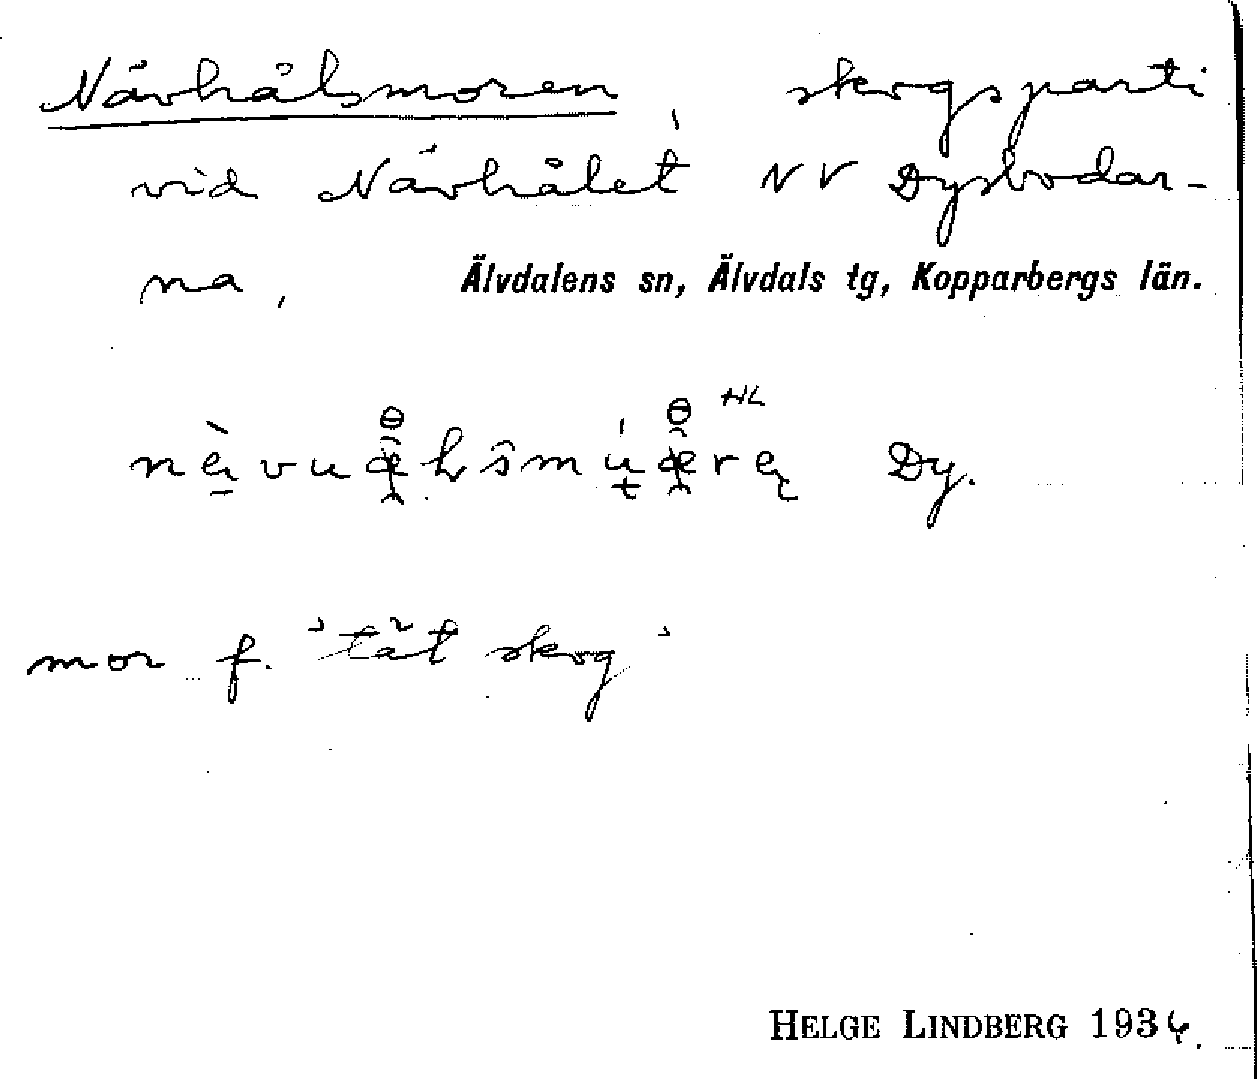 Nävhålsmoren, skogsparti
vid Nävhålet NV Dysbodar-
na,
Älvdalens sn, Älvdals tg, Kopparbergs län.
HL
Dy.
mor f. 'tät skog'
HELGE LINDBERG 1936.